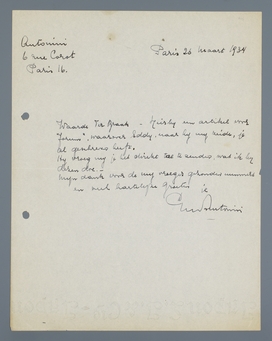 Antonini
6 rue Corot
Paris 16.
Paris 26 maart 1934
Waarde Ter Braak - Hierbij een artikel voor
"Forum", waarover Eddy, naar hij mij zeide, je
al geschreven heeft.
Hij vroeg mij je het direkt toe te zenden, wat ik bij
deze doe. -
Mijn dank voor de mij vroeger gezonden nummers
en met hartelijke groeten je
Antonini